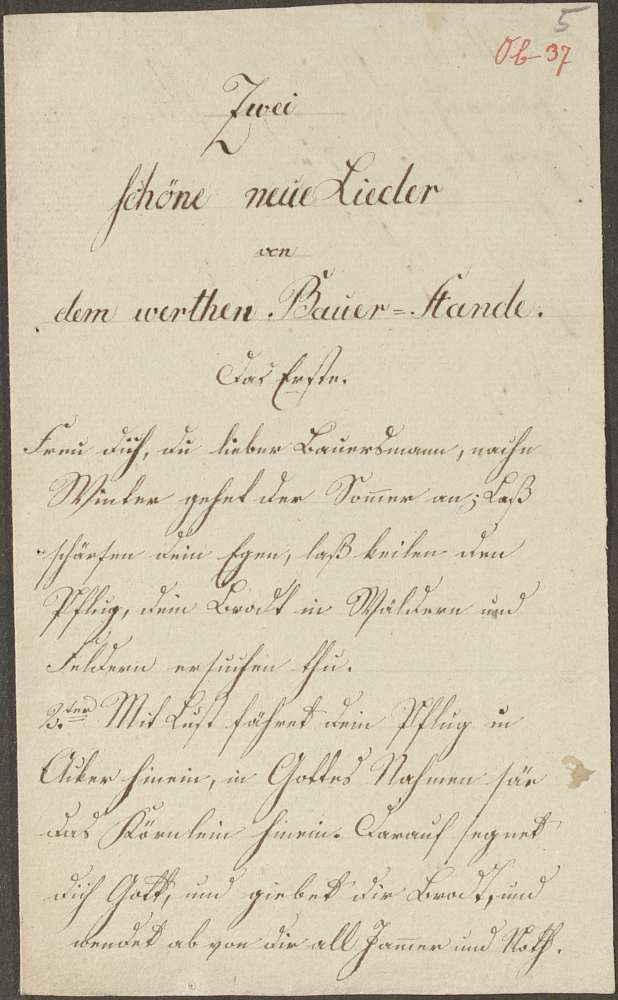 5
Ob-37
Zwei
schöne neue Lieder
von
dem werthen Bauer=Stande.
Das Erste.
Freu dich, du lieber Bauersmann, nachn
Winter gehet der Som̄er an; Laß
schärfen dein Egen, laß keilen den
Pflug, dein Brodt in Wäldern und
Feldern ersuchen thu.
2.ter Mit Lust fähret dein Pflug in
Acker hinein, in Gottes Nahmen säe
das Körnlein hinein. Darauf segnet
dich Gott, und giebet dir Brodt, und
wendet ab von dir all Jam̄er und Noth.